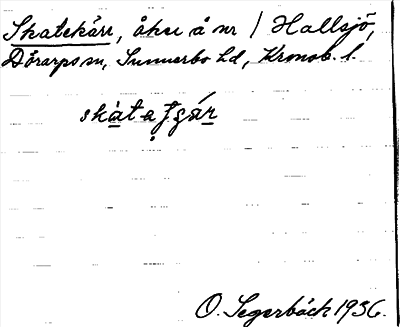 Skatekärr, åker å nr 1 Hallsjö,
Dörarps sn, Sunnerbo hd, Kronob. l.
O. Segerbäck 1936.